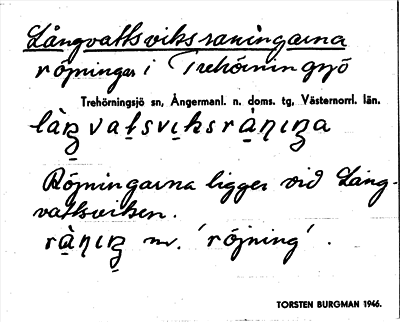 Långvattsviksraningarna
röjningar i Trehörningsjö
Trehörningsjö sn, Ångermanl. n. doms. tg, Västernorrl. län.
Röjningarna ligger vid Lång-
vattsviken.
nr. 'röjning'.
TORSTEN BURGMAN 1946.